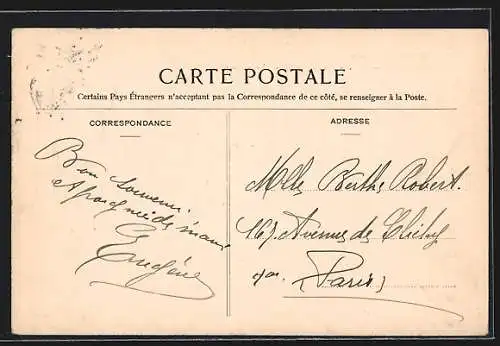 CARTE POSTALE
Certains Pays Étrangers n'acceptant pas la Correspondance de ce côté, se renseigner à la Poste.
CORRESPONDANCE
ADRESSE
Bon souvenir
Eugène
Mlle Berthe Robert.
167 Avenue de Clichy
Paris